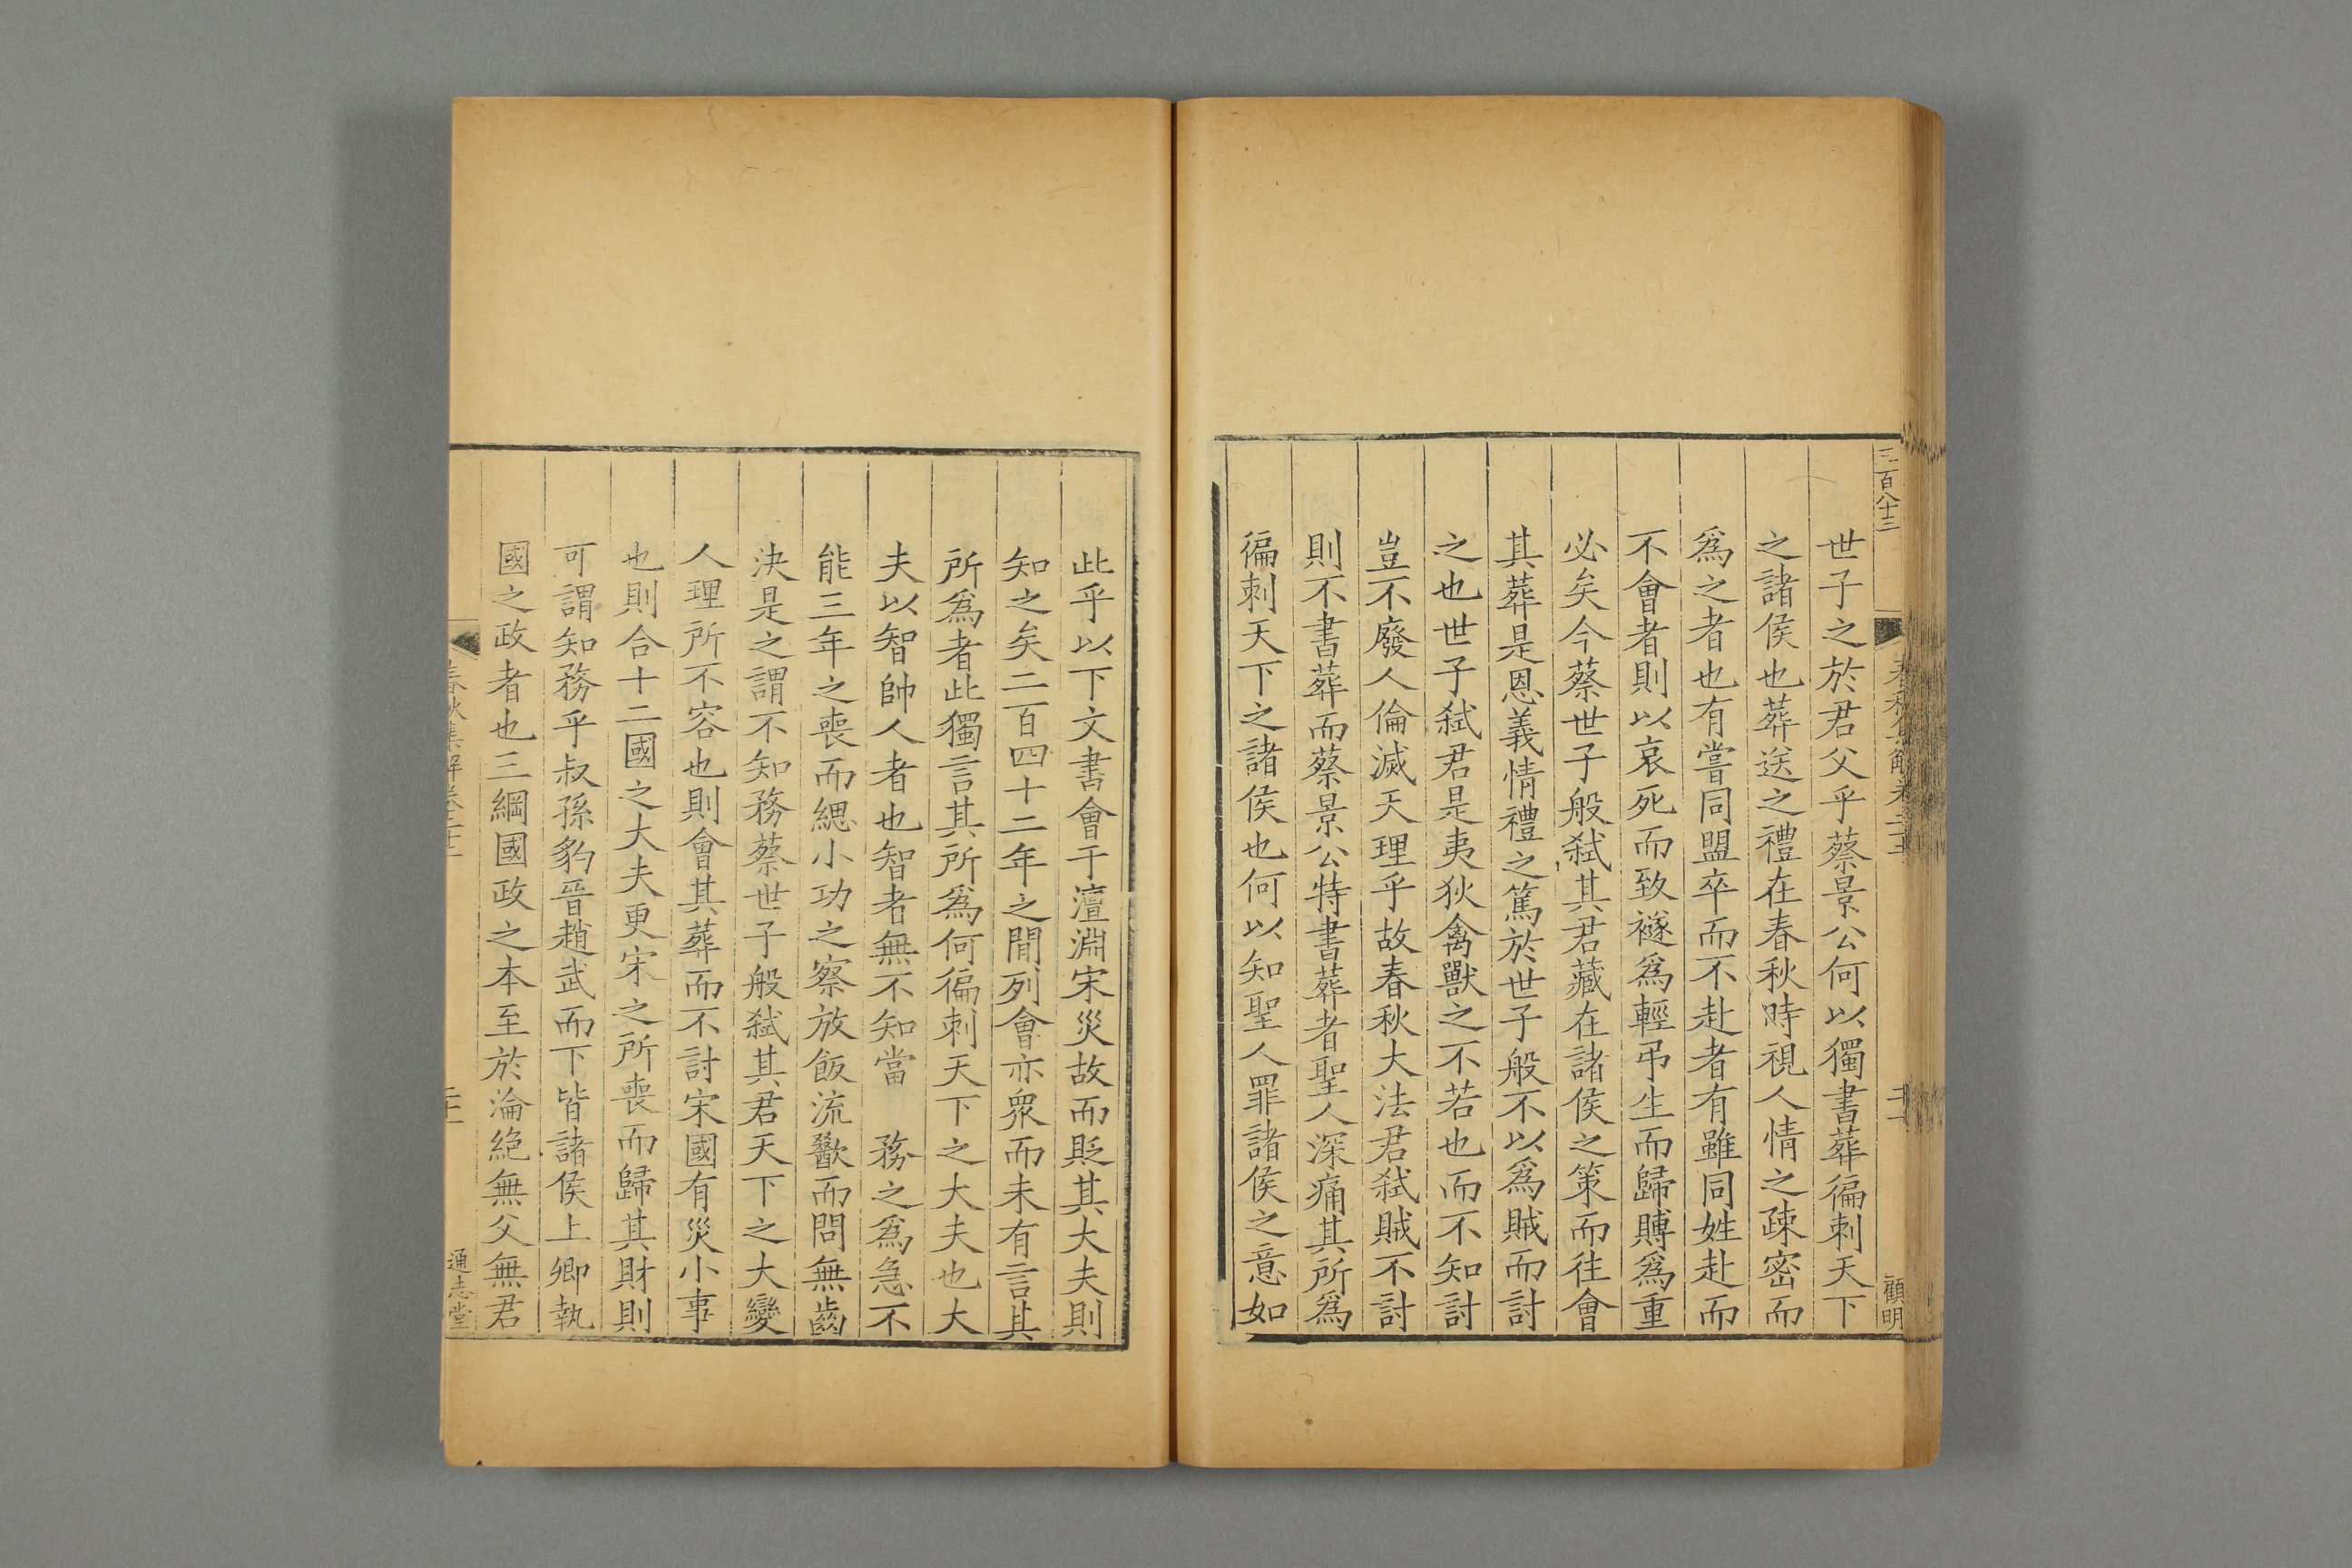 三百八十三
世子之於君父乎蔡景公何以獨書葬徧刺天下
之諸侯也葬送之禮在春秋時視人情之疎密而
爲之者也有嘗同盟卒而不赴者有雖同姓赴而
不會者則以哀死而致襚爲輕弔生而歸賻爲重
必矣今蔡世子般弑其君藏在諸侯之策而往會
其葬是恩義情禮之篤於世子般不以爲賊而討
之也世子弑君是夷狄禽獸之不若也而不知討
豈不廢人倫滅天理乎故春秋大法君弑賊不討
則不書葬而蔡景公特書葬者聖人深痛其所爲
徧刺天下之諸侯也何以知聖人罪諸侯之意如
顧明
此乎以下文書會于澶淵宋災故而貶其大夫則
知之矣二百四十二年之間列會亦衆而未有言其
所爲者此獨言其所爲何徧刺天下之大夫也大
夫以智帥人者也智者無不知當 務之爲急不
能三年之喪而緦小功之察放飯流歠而問無齒
決是之謂不知務蔡世子般弑其君天下之大變
人理所不容也則會其葬而不討宋國有災小事
也則合十二國之大夫更宋之所喪而歸其財則
可謂知務乎叔孫豹晉趙武而下皆諸侯上卿執
國之政者也三綱國政之本至於淪絕無父無君
春秋集解卷二十二
通志堂